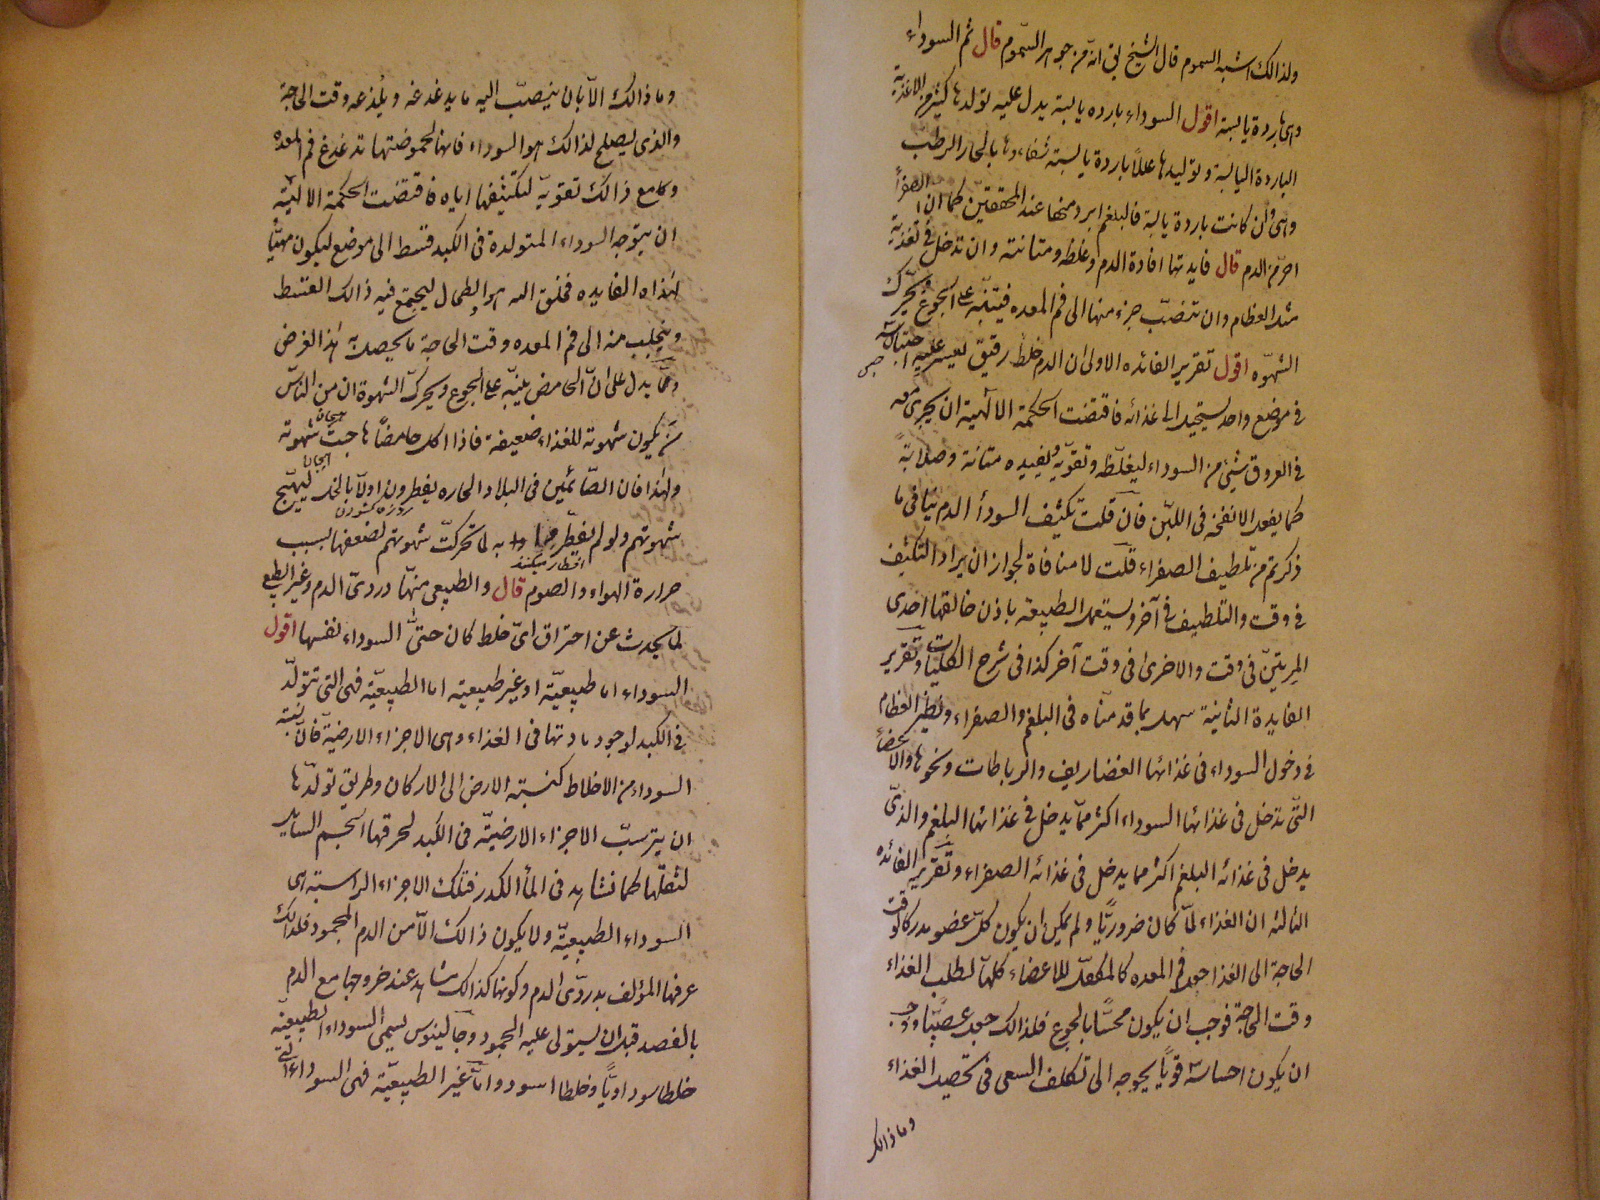 ولذالك اشبه السموم قال الشيخ بقى انه من جوهر السموم قال ثم السوداء
وهى باردة يابسة اقول السوداء بارده يابسة يدل عليه تولدها كثيرا من الاغذية
الباردة اليابسة وتوليدها عللاً باردة يابسة شفاءها بالحار الرطب
وهى وان كانت باردة يابسة فالبلغم ابرد منها عند المحققين كما ان الصفرا
احرّ من الدم قال فايدتها افادة الدم وغلظه ومتانته وان تدخل فى تغذية
مثل العظام وان تنصب جزء منها الى فم المعده فيتنبّه على الجوع ويحرك
الشهوه اقول تقرير الفائده الاولى ان الدم خلط رقيق ليعسر عليه احتباسه
فى موضع واحد ليستحيل الى غذائه فاقتضت الحكمة الالهية ان يجرى معه
فى العروق شيئ من السوداء ليغلّظه وتقويه وتفيده متانة وصلابةً
كما يفعل الانفخه فى اللبّن فان قلت تكثيف السودأ الدم ينافى ما
ذكرتم من تلطيف الصفراء قلت لا منافاة لجواز ان يراد التكثيف
فى وقت والتلطيف فى آخر ويستعمل الطبيعة باذن خالقها احدى
المرتين فى وقت والاخرى فى وقت آخر كذا فى شرح الكليات وتقرير
الفايدة الثانية سهل بما قدمناه فى البلغم والصفراء ونظير العظام
فى دخول السوداء فى غذائها الغضاريف والرباطات ونحوها والاعضاء
التى تدخل فى غذائها السوداء اكثر مما يدخل فى غذائها البلغم والذى
يدخل فى غذائه البلغم اكثر مما يدخل فى غذائه الصفراء وتقرير الفائده
الثالثه ان الغذاء لمّا كان ضروريًّا ولم يمكن ان يكون كلّ عضو مدركا لوقت
الحاجة الى الغذا جعل فم المعده كالمكفل للاعضاء كلها لطلب الغذاء
وقت الحاجة فوجب ان يكون محسًّا بالجوع فلذالك جعل عصبيًّا ووجب
ان يكون احساسه قويًّا يحوجه الى تكلف السعى فى تحصيل الغذاء
وما ذالك
وما ذالك الّا بان ينصبّ اليه ما يدغدغه ويلذعه وقت الحاجة
والذى يصلح لذالك هو السوداء فانها لحموضتها تدغدغ فم المعده
ولها مع ذالك تقوية لتكثيفها اياه فاقتضت الحكمة الالهيّة
ان يتوجه السوداء المتولدة فى الكبد قسط الى موضع ليكون مهيّأ
لهذه الفايده فخلق الله هو الطحال ليجتمع فيه ذالك القسط
وينجلب منه الى فم المعده وقت الحاجة ما يحصل به هذا الغرض
ومما يدل على انّ الحامض ينبّه على الجوع ويحرك الشهوة ان من الناس
من يكون شهوته للغذاء ضعيفة فاذا اكل حامضًا هاجت شهوته
ولهذا فان الصّائمين فى البلاد الحاره يفطرون اولاً بالخل ليهيّج
شهوتهم ولو لم يفطّر به لما تحركت شهوتهم لضعفها بسبب
افطار ميكنند
حرارة الهواء والصوم قال والطبيعى منها دردىّ الدم وغير الطبيعى
لما يحدث عن احتراق اىّ خلط كان حتى السوداء نفسها اقول
السوداء اما طبيعيّة او غير طبيعية اما الطبيعيّة فهى التى تتولّد
فى الكبد لوجود مادتها فى الغذاء وهى الاجزاء الارضية فان نسبة
السوداء من الاخلاط كنسبة الارض الى الاركان وطريق تولّدها
ان يترسبّ الاجزاء الارضيّة فى الكبد لحرقها الجسم السايل
لثقلها كما نشاهد فى المأ الكدر فتلك الاجزاء الراسبة هى
السوداء الطبيعيّة ولا يكون ذالك الّا من الدم المحمود فلذالك
عرفها المؤلف بدردّى الدم وكونها كذالك شاهد عند خروجها مع الدم
بالفصد قبل ان يستولى عليه الجمود وجالينوس يسمى السوداء الطبيعيّة
خلطا سوداويًّا وخلطا اسود واما غير الطبيعيّة فهى السوداء التى